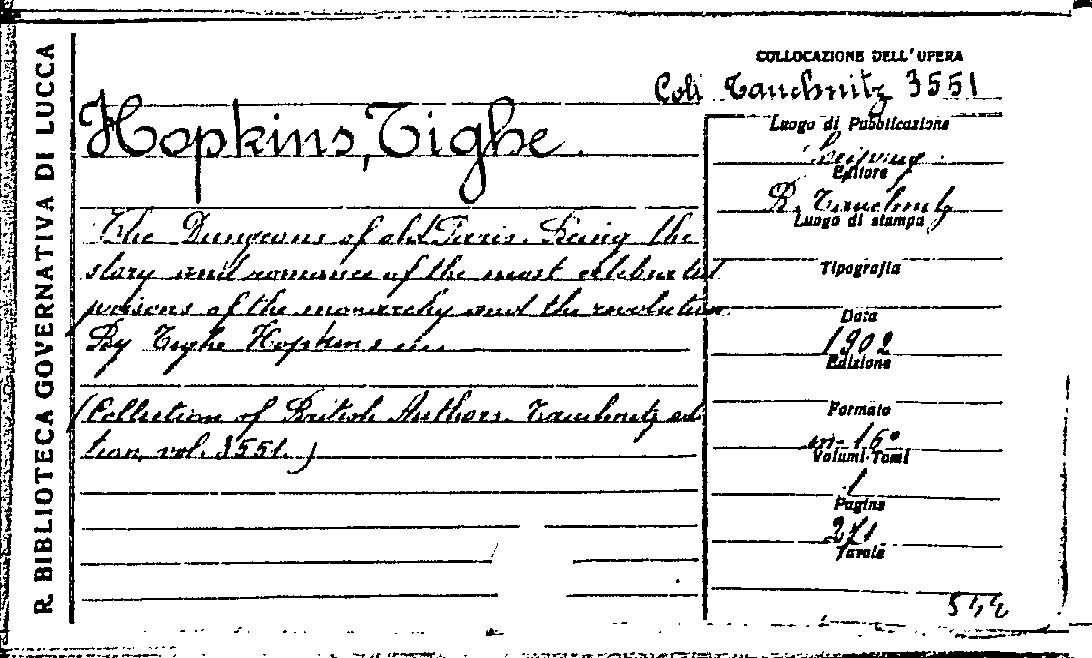 R. BIBLIOTECA GOVERNATIVA DI LUCCA
COLLOCAZIONE DELL'OPERA
Coll Tauchnitz 3551
Hopkins, Tighe.
The Dungeons of old Paris. Being the
story and romance of the most celebrated
prisons of the monarchy and the revolution.
By Tighe Hopkins
(Collection of British Authors. Tauchnitz edi
tion, vol. 3551.)
Luogo di Pubblicazione
Leipzig.
Editore
B. Tauchnitz
Luogo di stampa
Tipografia
Data
1902
Edizione
Formato
in-16°
Volumi-Tomi
1
Pagine
271
Tavole